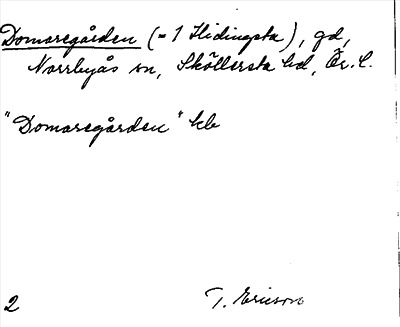 Domaregården (= 1 Hidingsta), gd,
Norrbyås sn, Sköllersta hd, Ör. l.
"Domaregården" kb
2 T. Ericson